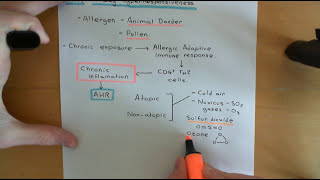 Hyperresponsiveness
- Allergen - Animal Dander
- Pollen.
- Chronic exposure → Allergic Adaptive
immune response.
Chronic
inflammation ← CD4+ Th2
cells
AHR
Atopic - Cold air
- Noxious - SO2
gases - O3
Non-atopic
Sulfur dioxide
O=S=O
Ozone